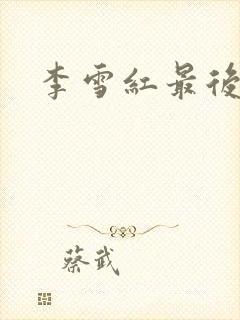 李雪紅最後
蔡武